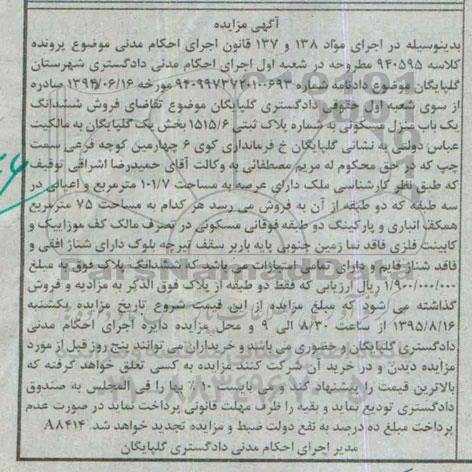 آگهی مزایده
بدینوسیله در اجرای مواد ۱۳۸ و ۱۳۷ قانون اجرای احکام مدنی موضوع پرونده
کلاسه ۹۴۰۵۹۵ مطروحه در شعبه اول اجرای احکام مدنی دادگستری شهرستان
گلپایگان موضوع دادنامه شماره ۹۴۰۹۹۷۳۷۲۰۱۰۰۶۹۳ مورخه ۱۳۹۴/۰۶/۱۶ صادره
از سوی شعبه اول حقوقی دادگستری گلپایگان موضوع تقاضای فروش ششدانگ
یک باب منزل مسکونی به شماره پلاک ثبتی ۱۵۱۵/۶ بخش یک گلپایگان به مالکیت
عباس دولتی به نشانی گلپایگان خ فرمانداری کوی ۶ چهارمین کوچه فرعی سمت
چپ که در حق محکوم له مریم مصطفائی به وکالت آقای حمیدرضا اشراقی توقیف
که طبق نظر کارشناسی ملک دارای عرصه به مساحت ۱۰۱/۷ مترمربع و اعیان در
سه طبقه که دو طبقه از آن به فروش می رسد هر کدام به مساحت ۷۵ مترمربع
همکف انباری و پارکینگ دو طبقه فوقانی مسکونی در تصرف مالک کف موزاییک و
کابینت فلزی فاقد نما زمین جنوبی پایه باربر سقف تیرچه بلوک دارای شناژ افقی و
فاقد شناژ قایم و دارای تمامی امتیازات می باشد که ششدانگ پلاک فوق به مبلغ
۱/۹۰۰/۰۰۰/۰۰۰ ریال ارزیابی که فقط دو طبقه از پلاک فوق الذکر به مزادیه و فروش
گذاشته می شود که مبلغ مزایده از این قیمت شروع تاریخ مزایده یکشنبه
۱۳۹۵/۸/۱۶ از ساعت ۸/۳۰ الی ۹ و محل مزایده دایره اجرای احکام مدنی
دادگستری گلپایگان و حضوری می باشد و خریداران می توانند پنج روز قبل از مورد
مزایده دیدن و در خرید آن شرکت کنند مزایده به کسی تعلق خواهد گرفته که
بالاترین قیمت را پیشنهاد کند و می بایست ۱۰٪ بها را فی المجلس به صندوق
دادگستری تودیع نماید و بقیه را ظرف مهلت قانونی پرداخت نماید در صورت عدم
پرداخت مبلغ ده درصد به نفع دولت ضبط و مزایده تجدید خواهد شد. ۸۸۴۱۴
مدیر اجرای احکام مدنی دادگستری گلپایگان